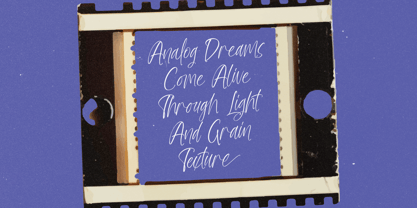 Analog Dreams
Come Alive
Through Light
And Grain
Texture